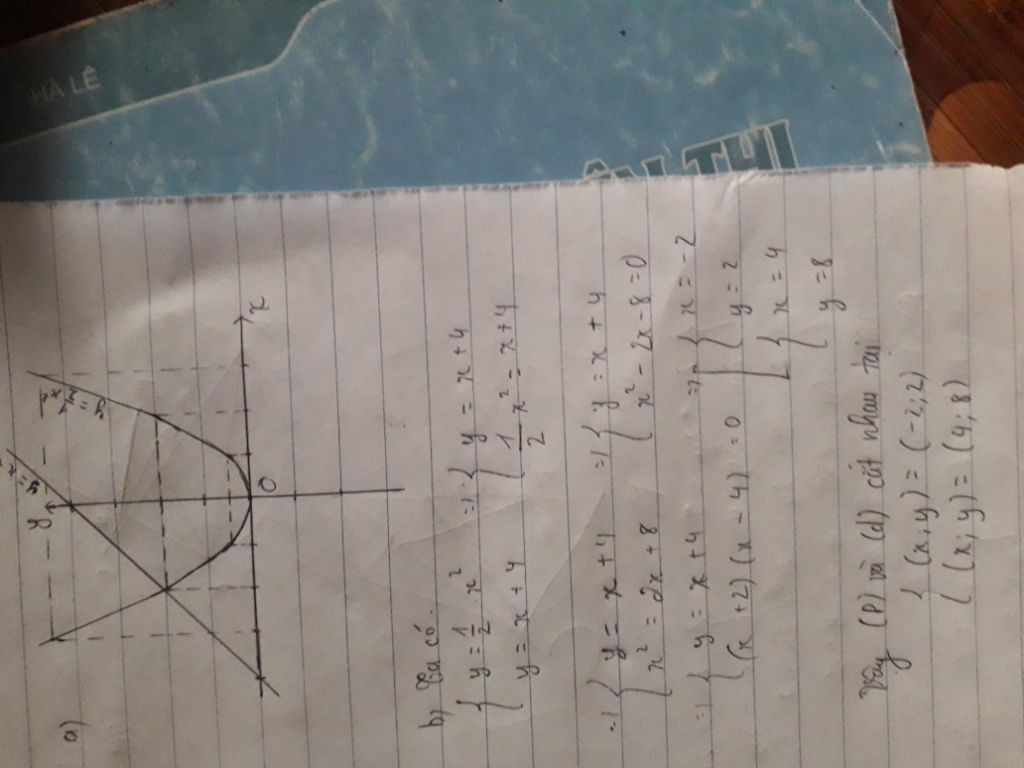 HÀ LÊ
ÔN THI
a)
y
x
O
b) Ta có
{ y = 1/2 x²
y = x + 4
=> { y = x + 4
1/2 x² = x + 4
=> { y = x + 4
x² = 2x + 8
=> { y = x + 4
x² - 2x - 8 = 0
=> { y = x + 4
(x + 2)(x - 4) = 0
=> [ { x = -2
y = 2
{ x = 4
y = 8
Vậy (P) và (d) cắt nhau tại
{ (x; y) = (-2; 2)
(x; y) = (4; 8)